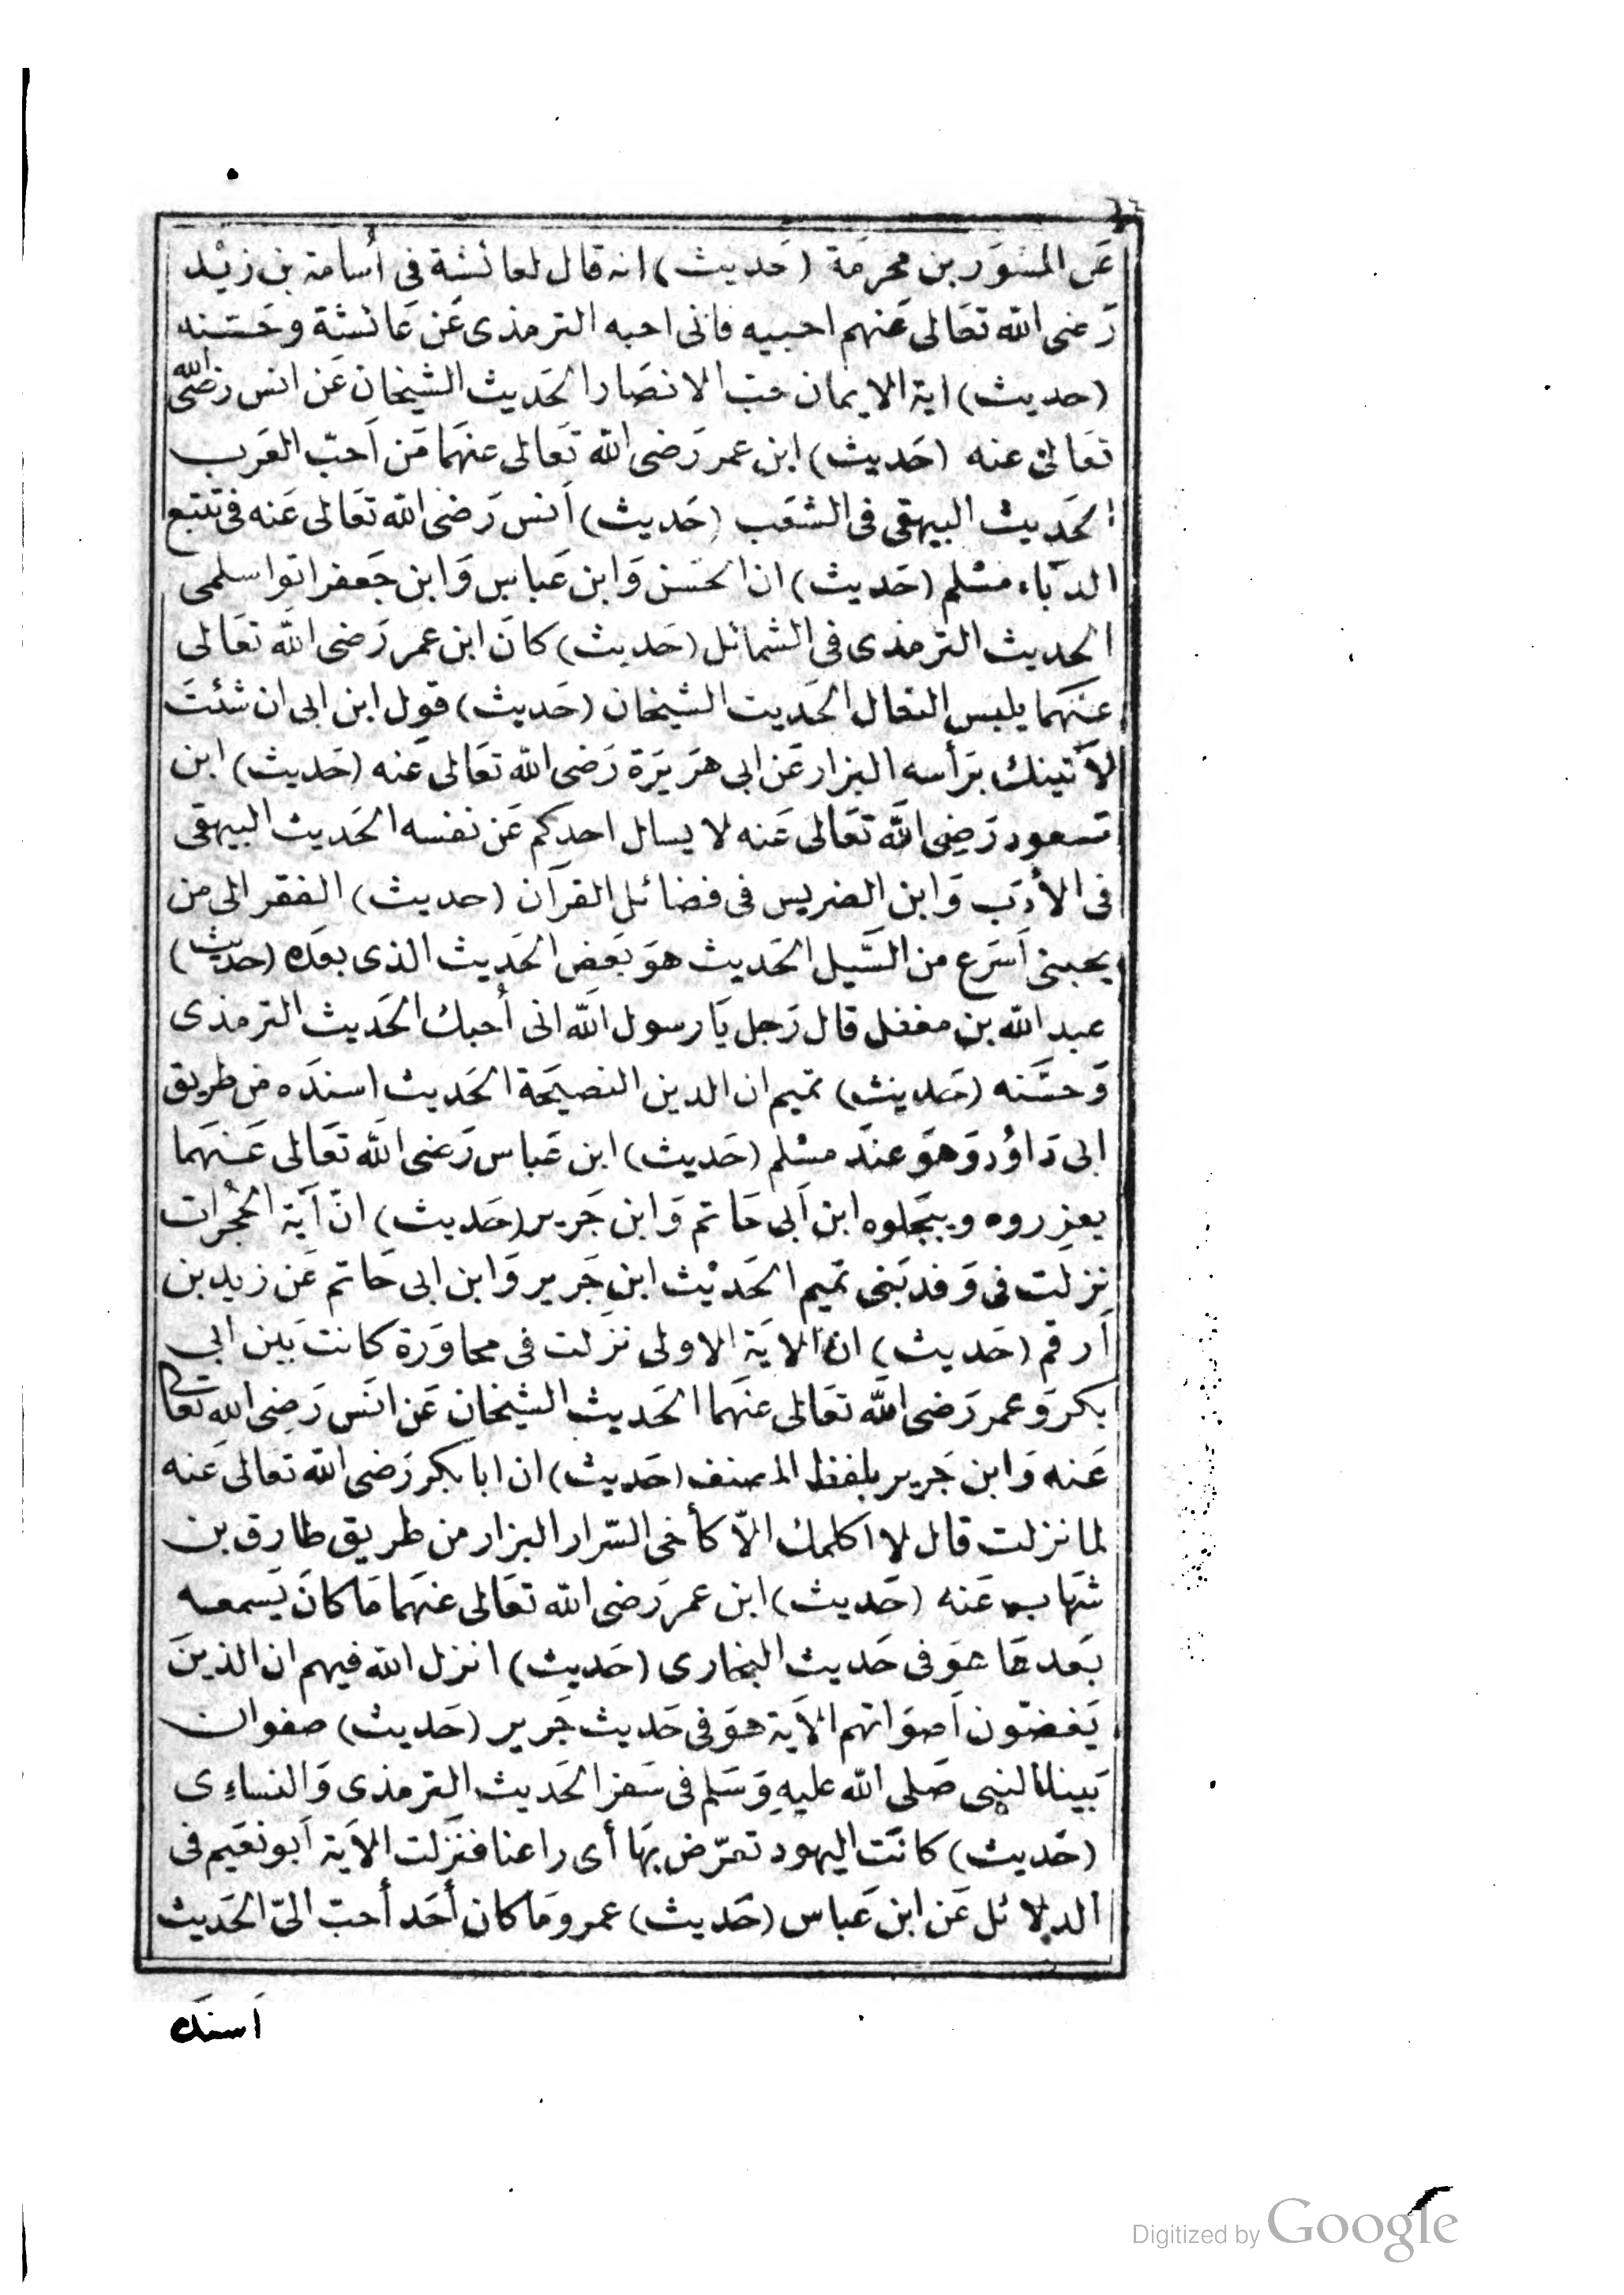 عَن المسْوَر بن مخرَمَة (حَديث) انه قال لعائشة فى أسامة بن زيْد
رَضى الله تعَالى عَنهم احبيه فانى احبه الترمذى عَن عَائشة وحَسّنه
(حديث) اية الايمان حبّ الانصَار الحَديث الشيخان عَن انس رَضى الله
تعَالى عنه (حَديث) ابن عمر رَضى الله تعَالى عنهَما مَن اَحبّ العَرب
الحَديث البيهقى فى الشعَب (حَديث) اَنس رَضى الله تعَالى عَنه فى تتبع
الدبّاء مسْلم (حَديث) ان الحسَن وَابن عَباس وَابن جَعفر اتوا سلمى
الحديث الترمذى فى الشمائل (حَديث) كانَ ابن عمر رَضى الله تعَالى
عنهَما يلبس النعال الحَديث الشيخان (حَديث) قول ابن ابى ان شئتَ
لآتينك برَأسه البزار عَن ابى هرَيرَة رَضى الله تعَالى عَنه (حَديث) ابن
مسعود رَضِى الله تعَالى عَنه لا يسال احدكم عَن نفسه الحَديث البيهقى
فى الأدَب وَابن الضريس فى فضائل القرآن (حديث) الفقر الى من
يحبنى اَسَرع من السَّيل الحَديث هوَ بَعض الحَديث الذى بعدَه (حديث)
عبد الله بن مغفل قال رَجل يَا رسول الله انى أحبك الحَديث الترمذى
وَحسَّنه (حَديث) تميم ان الدين النصيَحة الحَديث اسندَه من طريق
ابى دَاوُد وَهوَ عندَ مسْلم (حَديث) ابن عَباس رَضى الله تعَالى عَنهَما
يعزروه ويبَجلوه ابن اَبى حَاتم وَابن جَرير (حَديث) انّ آيَة الحُجرات
نزلت فى وَفد بَنى تميم الحَديْث ابن جَرير وَابن ابى حَاتم عَن زيد بن
اَرقم (حَديث) ان الايَة الاولى نزَلت فى محاوَرة كانت بَين ابى
بكر وَعمر رَضى الله تعَالى عنهَما الحَديث الشيخان عَن انَس رَضِى الله تعَالى
عَنه وَابن جَرير بلفظ المصنف (حَديث) ان ابا بكر رَضى الله تعَالى عَنه
لما نزلت قال لا اكلمك الاّ كأخى السّرار البزار من طريق طارق بن
شهَاب عَنه (حَديث) ابن عمر رَضى الله تعَالى عنهَما مَا كانَ يَسمعه
بَعدهَا هوَ فى حَديث البخارى (حَديث) انزل الله فيهم ان الذينَ
يَغضّون اَصوَاتهم الاَية هوَ فى حَديث جَرير (حَديث) صفوان
بَينا النبى صَلى الله عليهِ وَسَلم فى سَفر الحَديث الترمذى وَالنساءِى
(حَديث) كانَت اليهود تعرّض بهَا أى راعنا فنزَلت الاَية اَبو نعَيم فى
الدلائل عَن ابن عَباس (حَديث) عمرو مَا كان أحَد أحبّ الىّ الحَديث
اَسنَد
Digitized by Google